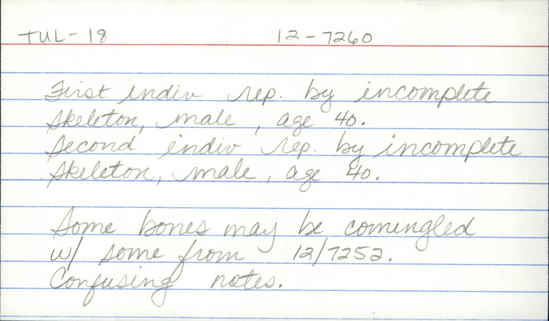 TUL-18 12-7260
First indiv rep. by incomplete
skeleton, male, age 40.
Second indiv rep. by incomplete
skeleton, male, age 40.
Some bones may be comingled
w/ some from 12/7252.
Confusing notes.